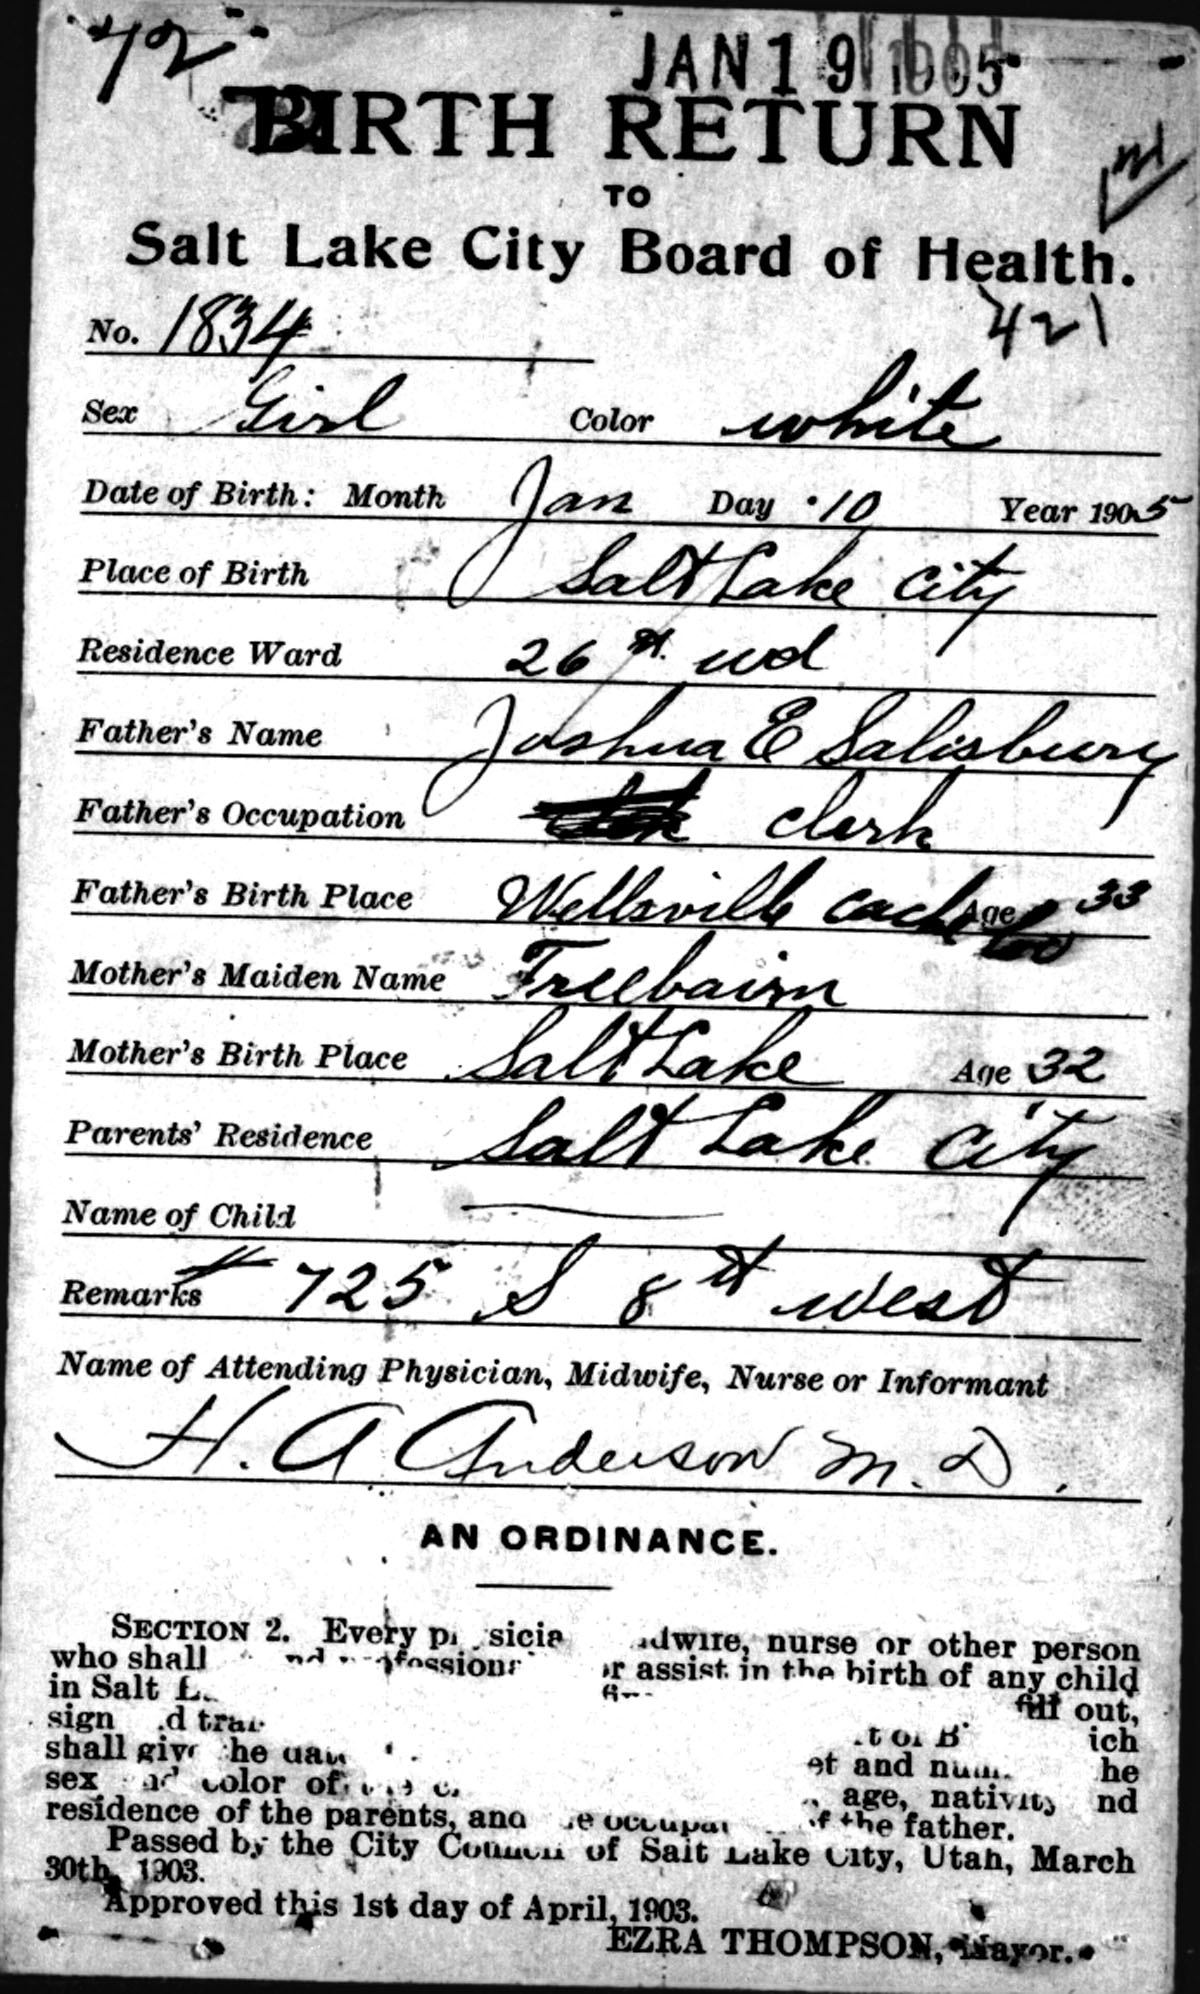 72
JAN 19 1905
BIRTH RETURN
TO
Salt Lake City Board of Health.
421
No. 1834
Sex Girl Color white
Date of Birth: Month Jan Day 10 Year 1905
Place of Birth Salt Lake City
Residence Ward 26th wd
Father's Name Joshua E Salisbury
Father's Occupation clerk
Father's Birth Place Wellsville Cache Co Age 33
Mother's Maiden Name Freebairn
Mother's Birth Place Salt Lake Age 32
Parents' Residence Salt Lake City
Name of Child —
Remarks # 725 S 8th west
Name of Attending Physician, Midwife, Nurse or Informant
H. A Anderson M. D.
AN ORDINANCE.
SECTION 2. Every nurse or other person
who shall assist in the birth of any child
in Salt fill out,
sign
shall give
sex color of age, nativity
residence of the parents, and of the father.
Passed by the City Council of Salt Lake City, Utah, March
30th, 1903.
Approved this 1st day of April, 1903.
EZRA THOMPSON, Mayor.